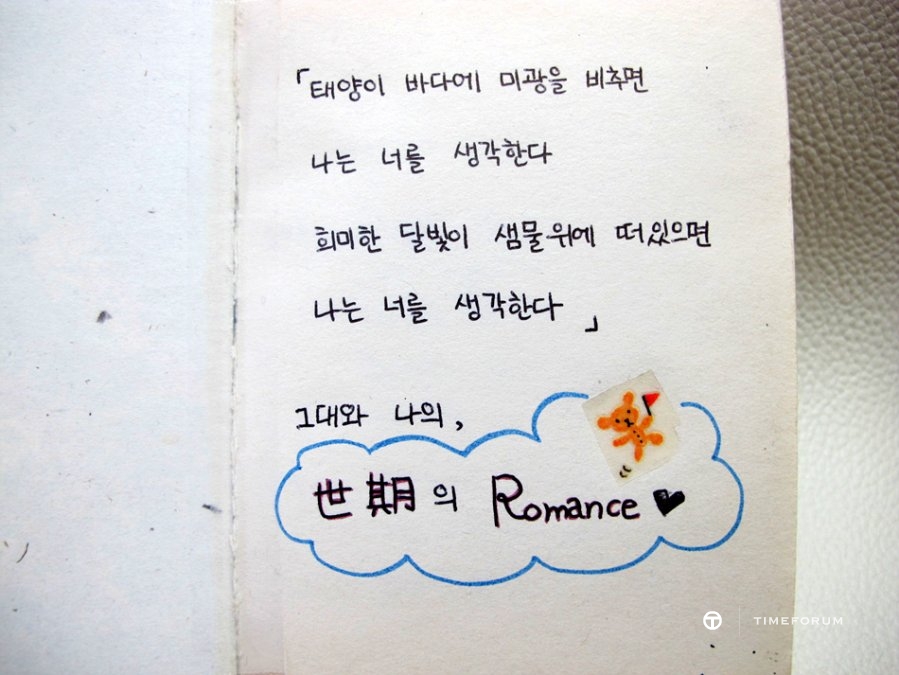 「태양이 바다에 미광을 비추면
나는 너를 생각한다
희미한 달빛이 샘물위에 떠있으면
나는 너를 생각한다」
그대와 나의,
世期의 Romance
TIMEFORUM